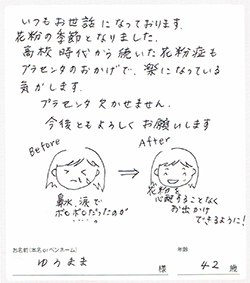 いつもお世話になっております.
花粉の季節となりました.
高校時代から続いた花粉症も
プラセンタのおかげで、楽になっている
気がします.
プラセンタ 欠かせません.
今後ともよろしくお願いします
Before
After
鼻水、涙で
ボロボロだったのが
.....
花粉を
心配することなく
お出かけ
できるように!
お名前(本名orペンネーム)
年齢
ゆうまま
様
42
歳